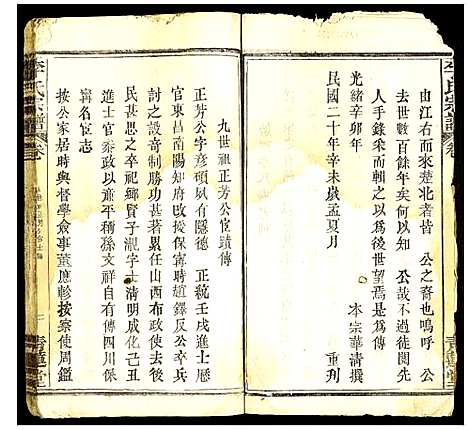 李氏宗譜
卷
由江右而來楚北者皆 公之裔也嗚呼 公
去世數百餘年矣何以知 公哉不過徒閱先
人手錄采而輯之以為後世望焉是為傳
光緒辛卯年 本宗華清撰
民國二十年辛未歲孟夏月 重刊
青蓮堂
九世祖正芳公宦蹟傳
正芳公字彥碩夙有隱德 正統壬戌進士歷
官東昌南陽知府改授保甯時趙鐸反公卒兵
討之設竒制勝功甚著累任山西布政使去後
民甚思之卒祀鄉賢子瀧字士清明成化己丑
進士官叅政以蕭平稱孫文祥自有傳四川保
甯名宦志
按公家居時與督學僉事董應軫按察使周鑑
李氏宗譜
卷
青蓮堂